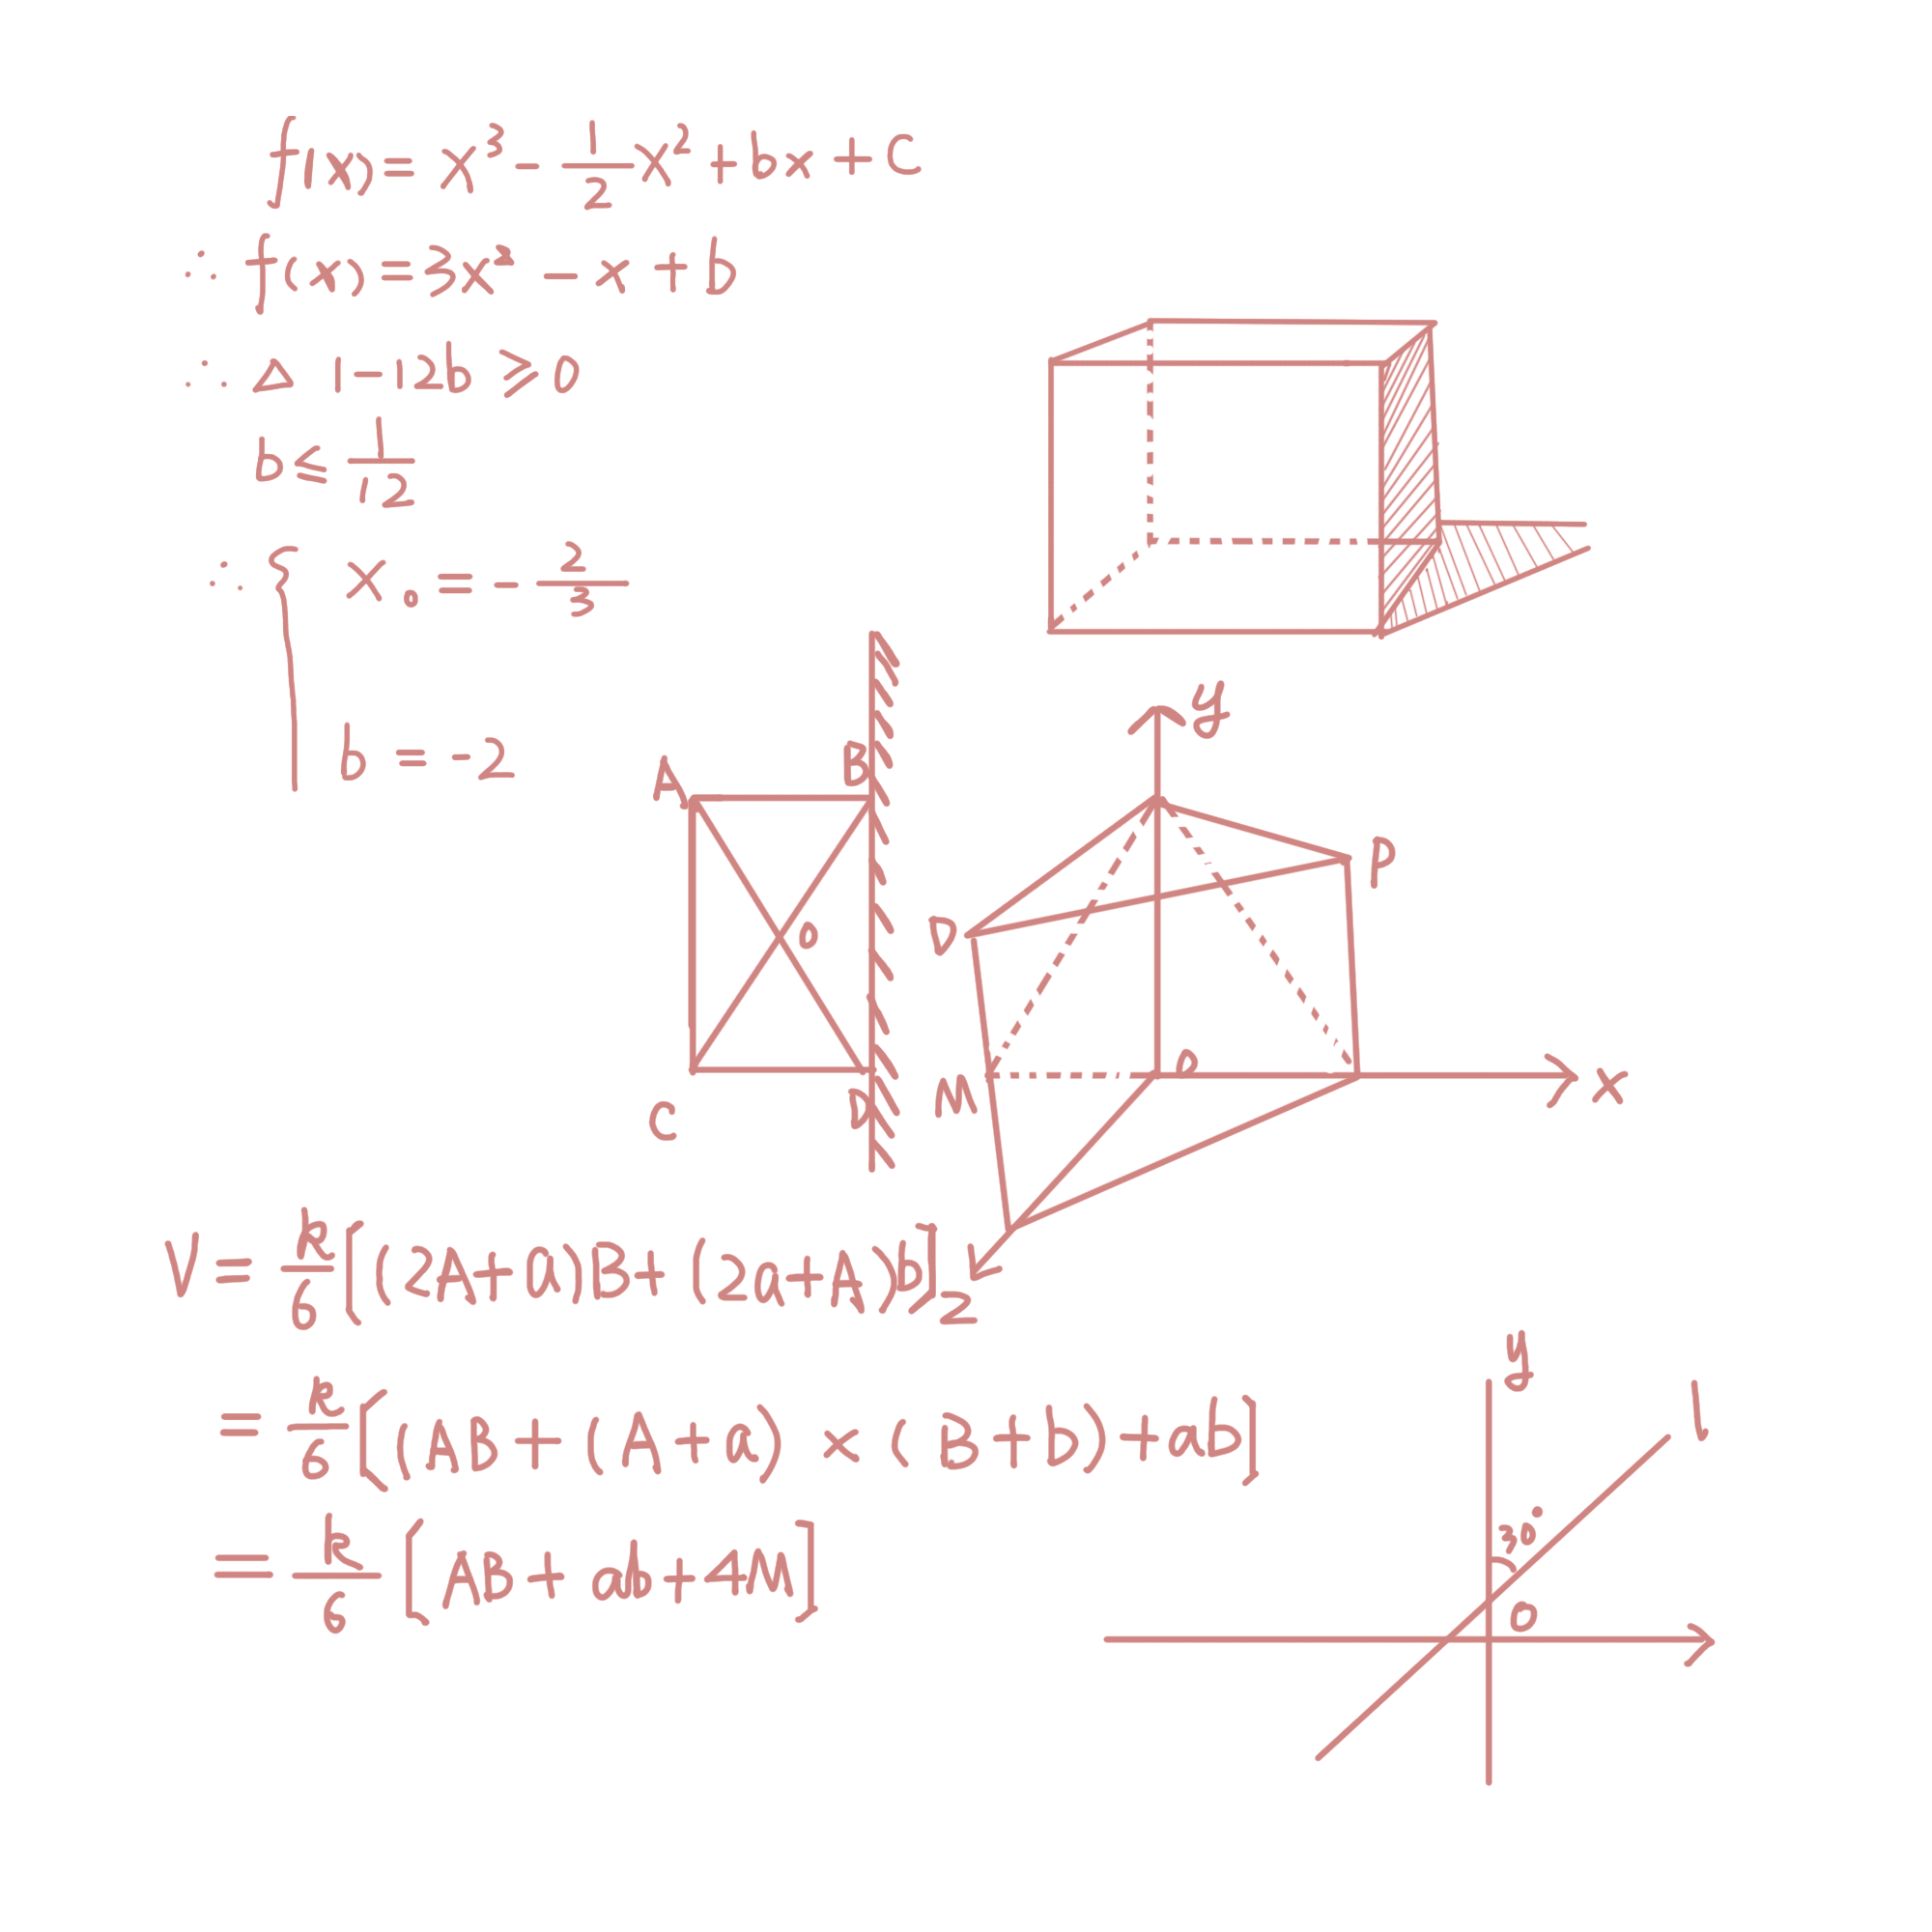 f(x)=x³-1/2x²+bx+C
∴ f(x)=3x²-x+b
∴ △ 1-12b ≥0
b≤1/12
∴ { x₀ = -2/3
b = -2
y
A B
P
O
D
M O
x
C D
V=k/6[(2A+a)B+(2a+A)b]
Z
=k/6[(AB+(A+a)x(B+b)+ab]
=k/6[AB+ab+4M]
y
L
30°
O